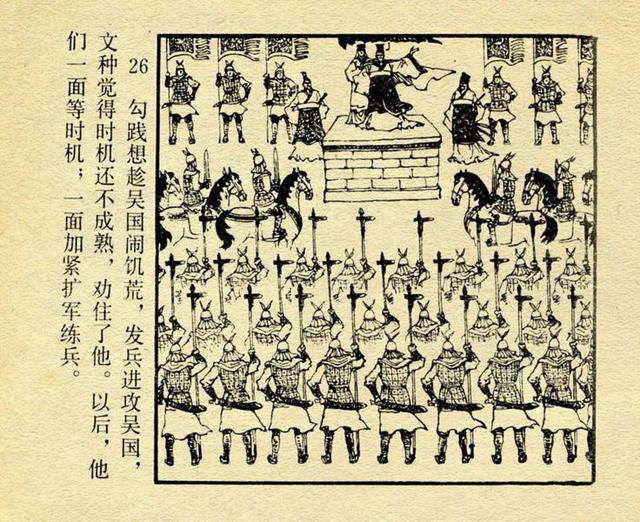 26 勾践想趁吴国闹饥荒，发兵进攻吴国，
文种觉得时机还不成熟，劝住了他。以后，他
们一面等时机；一面加紧扩军练兵。